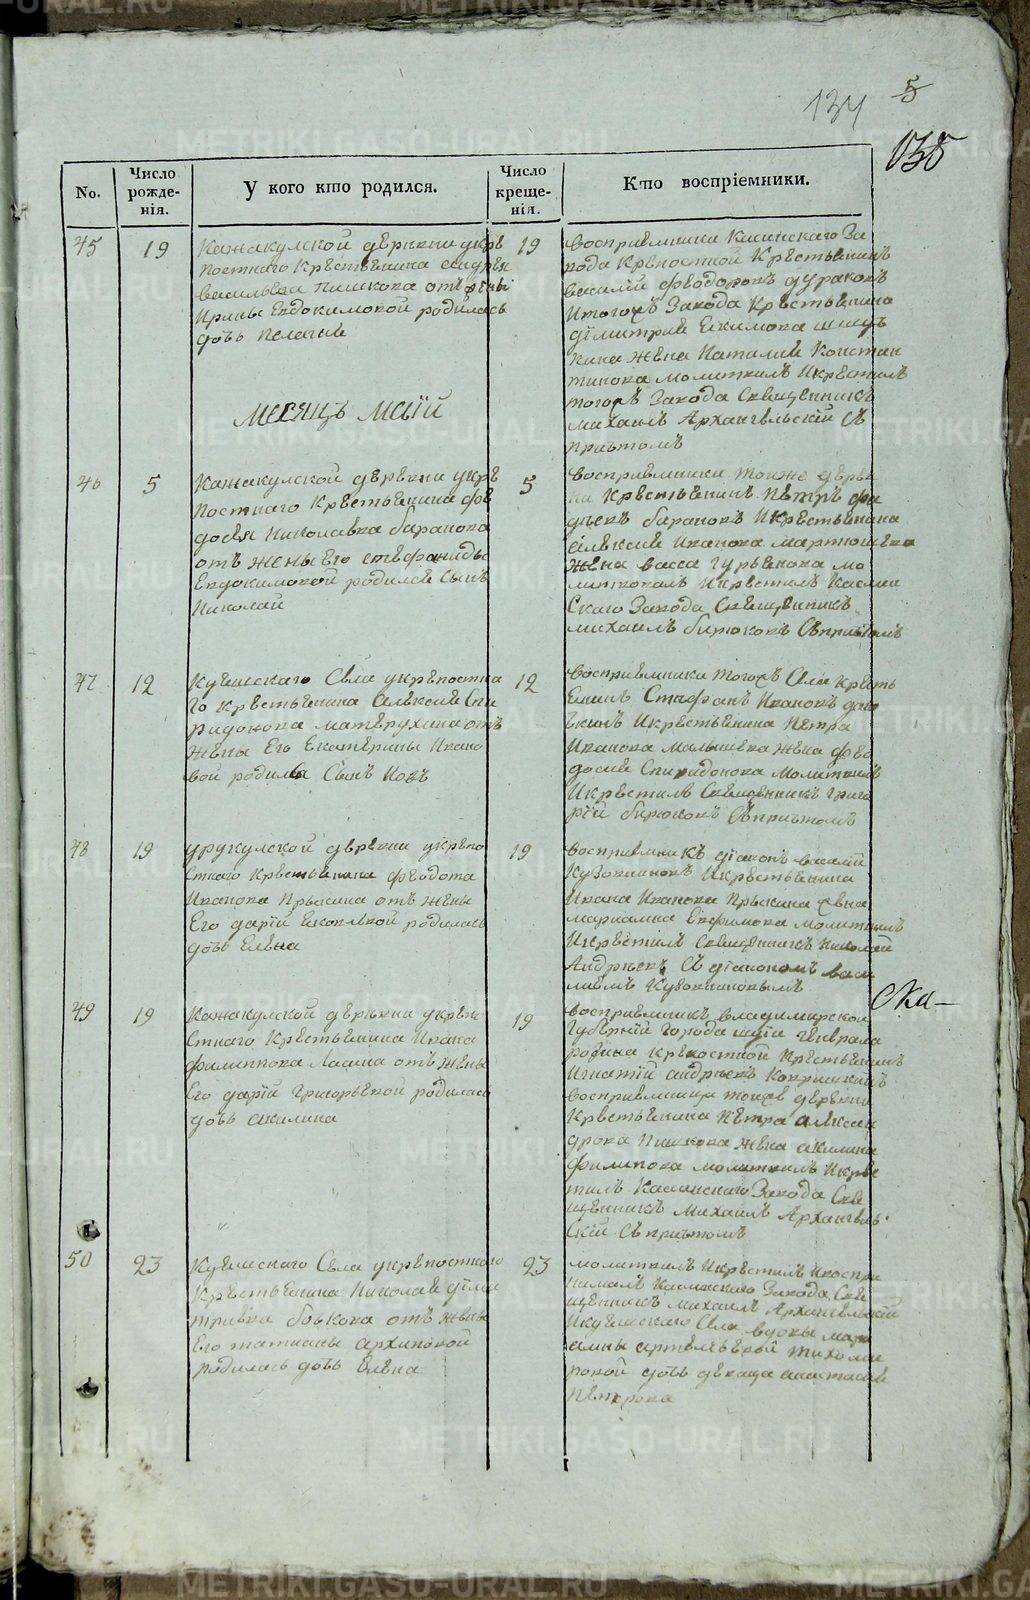 134 5
135
No.
Число рожде-нія.
У кого кто родился.
Число креще-нія.
Кто воспріемники.
45 19
Кажакулской деревни укре
постнаго Крестьянина Андрея
Васильева Пишкова от жены
Ирины Евдокимовой родилась
дочь Пелагия
19
восприемники Каслинскаго За
вода Крепостной Крестьянинъ
василий Феодоровъ дураковъ
Итогожъ Завода Крестьянина
димитрия Екимова
жена Наталия Констан
тинова молитвилъ Икрестилъ
тогожъ Завода Священникъ
михаилъ Архангельскій Съ
причтомъ
Месяцъ Маій
46 5
Кажакулской деревни укре
постнаго Крестьянина Фео
досея Николаева баранова
отъ жены Его стефаниды
Евдокимовой родился Сынъ
Николай
5
восприемники тояже дерев
ни Крестьянинъ Петръ Фа
деевъ барановъ Икрестьянина
алексея Иванова мартюшева
жена васса Гурьянова мо
литвовалъ Икрестилъ Каслин
Скаго Завода Священникъ
михаилъ бирюковъ Спричтомъ
47 12
Куяшскаго Села укрепостна
го Крестьянина алексея Спи
ридонова матерухина отъ
жены Его Екатерины Ивано
вой родился Сынъ Иовъ
12
восприемники тогожъ Села Кресть
Янинъ Стефанъ Ивановъ
Икрестьянина Петра
Иванова малышева жена Фео
досия Спиридонова молитвилъ
Икрестилъ Священникъ Григо
рій бирюковъ Спричтомъ
48 19
урукулской деревни укрепо
стнаго Крестьянина Феодота
Иванова Пряхина отъ жены
Его дарій Яковлевой родилась
дочь Елена
19
восприемникъ діаконъ василій
Кузовниковъ Икрестьянина
Ивана Иванова Пряхина жена
марианна Ефимова молитвилъ
Икрестилъ Священникъ николай
Андреевъ Съ діакономъ васи
лиемъ Кузовниковымъ
49 19
Кажакулской деревни укрепо
стнаго Крестьянина Ивана
Филиппова Лапина отъ жены
Его дарій Григорьевой родилась
дочь акилина
19
восприемникъ владимирской
Губерній Города шуи Генерала
родина Крепостной Крестьянинъ
Игнатій андреевъ
восприемница тойже деревни
Крестьянина Петра алексан
дрова Пишкова жена акилина
Филипова молитвилъ Икре
тилъ Каслинскаго Завода Свя
щенникъ михаилъ Архангель
Скій Съ причтомъ
Ска-
50 23
Куяшскаго Села укрепостнаго
Крестьянина Николая дими
триева бокова отъ жены
Его татианы архиповой
родилась дочь Елена
23
молитвилъ Икрестилъ Ивоспри
нималъ Каслинскаго Завода Свя
щенникъ михаилъ Архангельскій
Икуяшскаго Села вдовы
артемьевой
ровой дочь девица анастасия
Петрова